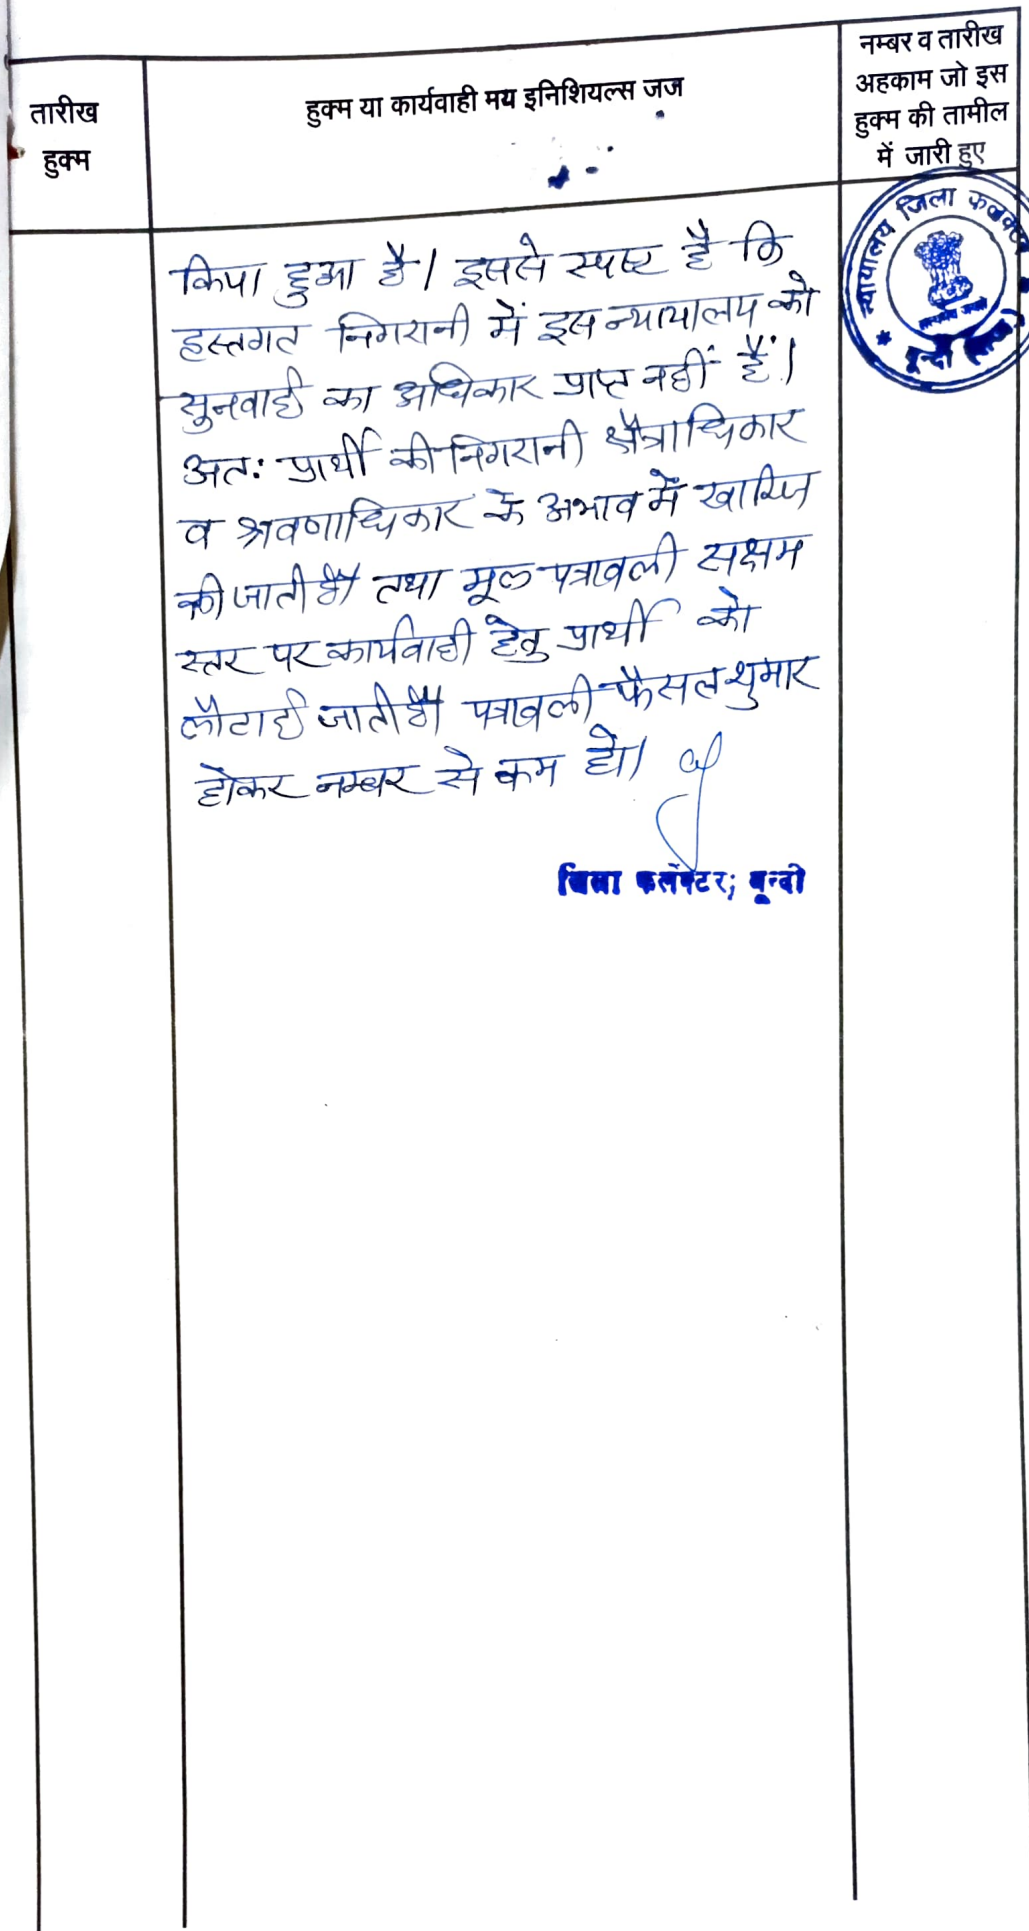 तारीख
हुक्म
हुक्म या कार्यवाही मय इनिशियल्स जज
नम्बर व तारीख
अहकाम जो इस
हुक्म की तामील
में जारी हुए
न्यायालय जिला कलक्टर
बून्दी
किया हुआ है। इससे स्पष्ट है कि
हस्तगत निगरानी में इस न्यायालय को
सुनवाई का अधिकार प्राप्त नहीं हैं।
अतः प्रार्थी की निगरानी क्षैत्राधिकार
व श्रवणाधिकार के अभाव में खारिज
की जाती है। तथा मूल पत्रावली सक्षम
स्तर पर कार्यवाही हेतु प्रार्थी को
लौटाई जाती है। पत्रावली फैसल शुमार
होकर नम्बर से कम हो।
जिला कलेक्टर; बून्दी